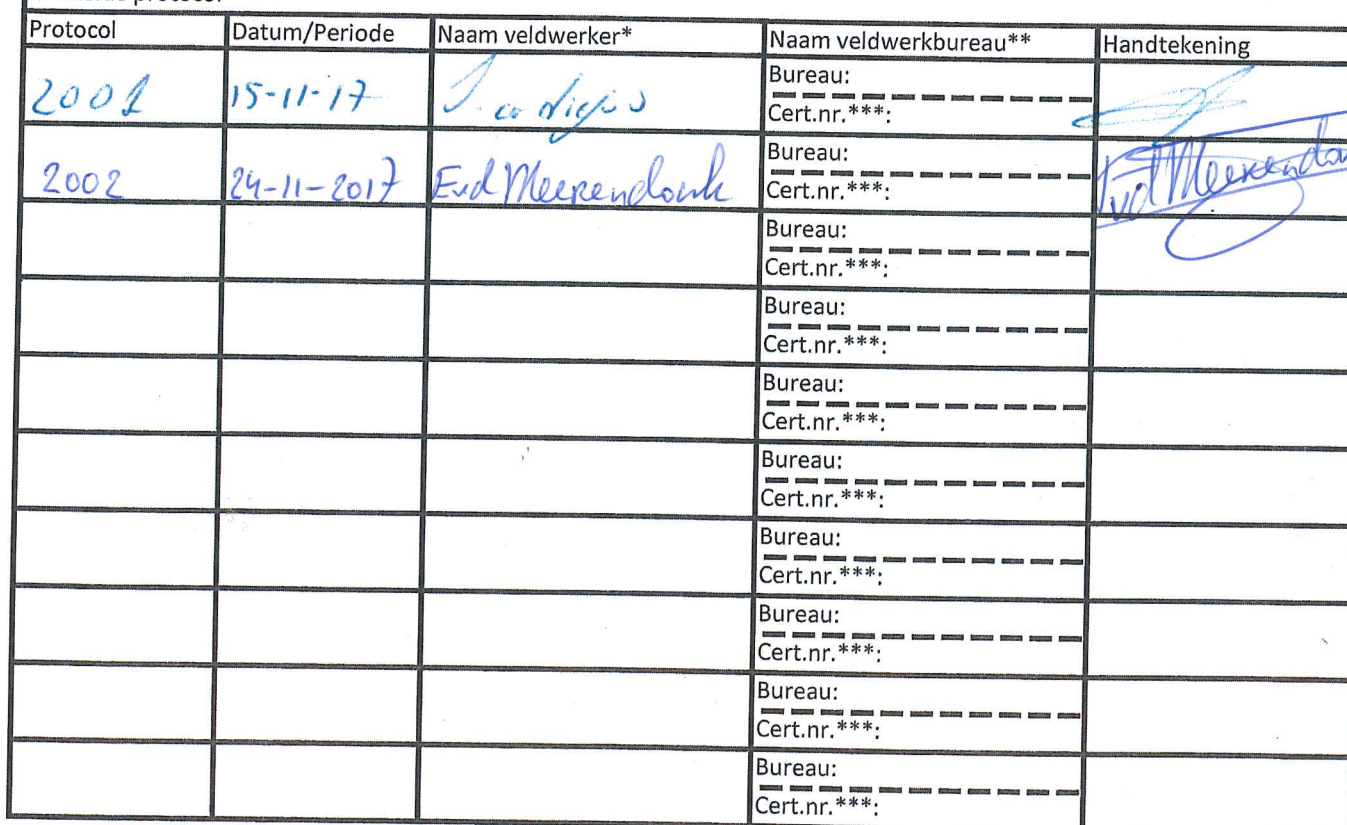 protocol
Protocol Datum/Periode Naam veldwerker* Naam veldwerkbureau** Handtekening
2001 15-11-17 Bureau:
Cert.nr.***:
2002 24-11-2017 Evd Meerendonk Bureau:
Cert.nr.***:
Evd Meerendon
Bureau:
Cert.nr.***:
Bureau:
Cert.nr.***:
Bureau:
Cert.nr.***:
Bureau:
Cert.nr.***:
Bureau:
Cert.nr.***:
Bureau:
Cert.nr.***:
Bureau:
Cert.nr.***:
Bureau:
Cert.nr.***: